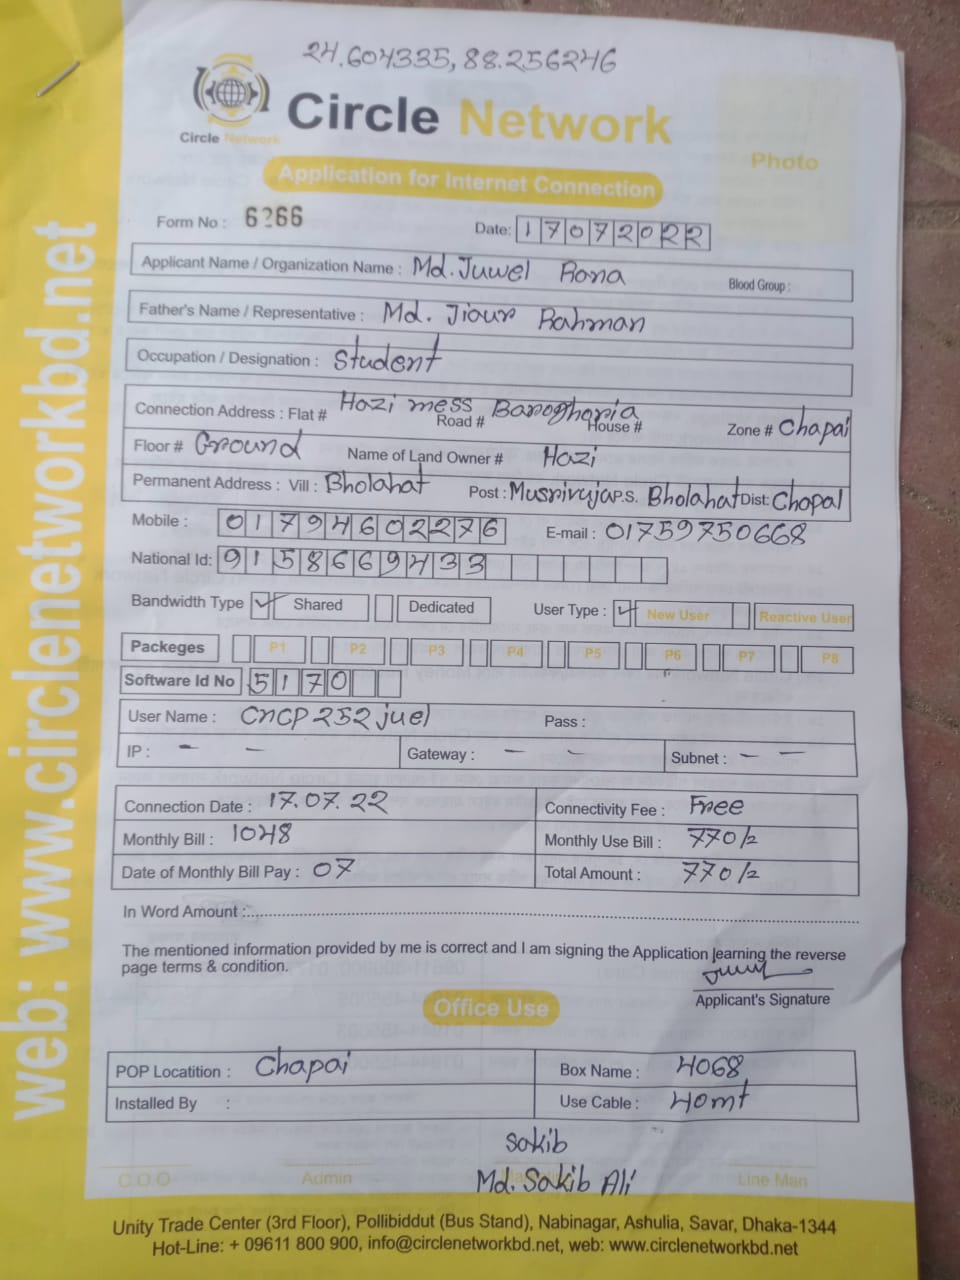 24.604335, 88.256246
Circle Network
Circle Network
Photo
Application for Internet Connection
Form No : 6266
Date: 17072022
Applicant Name / Organization Name : Md. Juwel Rana
Blood Group :
Father's Name / Representative : Md. Jiaur Rahman
Occupation / Designation : Student
Connection Address : Flat # Hazi mess Road # Baroghoria House # Zone # Chapai
Floor # Ground Name of Land Owner # Hazi
Permanent Address : Vill : Bholahat Post : P.S. Bholahat Dist: Chapai
Mobile : 01794602276 E-mail : 01759750668
National Id: 9158669433
Bandwidth Type Shared Dedicated User Type : New User Reactive User
Packeges P1 P2 P3 P4 P5 P6 P7 P8
Software Id No 5170
User Name : CNCP252juel Pass :
IP : - - Gateway : - - Subnet : - -
Connection Date : 17.07.22 Connectivity Fee : Free
Monthly Bill : 1048 Monthly Use Bill : 770/=
Date of Monthly Bill Pay : 07 Total Amount : 770/=
In Word Amount :
The mentioned information provided by me is correct and I am signing the Application learning the reverse
page terms & condition.
Applicant's Signature
Office Use
POP Locatition : Chapai Box Name : 4068
Installed By : Use Cable : 40mt
Sakib
C.O.O Admin Md. Sakib Ali Line Man
Unity Trade Center (3rd Floor), Pollibiddut (Bus Stand), Nabinagar, Ashulia, Savar, Dhaka-1344
Hot-Line: + 09611 800 900, info@circlenetworkbd.net, web: www.circlenetworkbd.net
web: www.circlenetworkbd.net